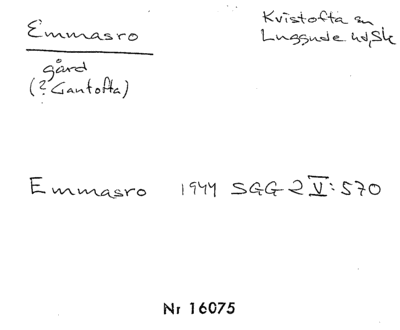 Emmasro
Kvistofta sn
Luggude hd, Sk
gård
(? Gantofta)
Emmasro 1944 SGG 2 V: 570
Nr 16075